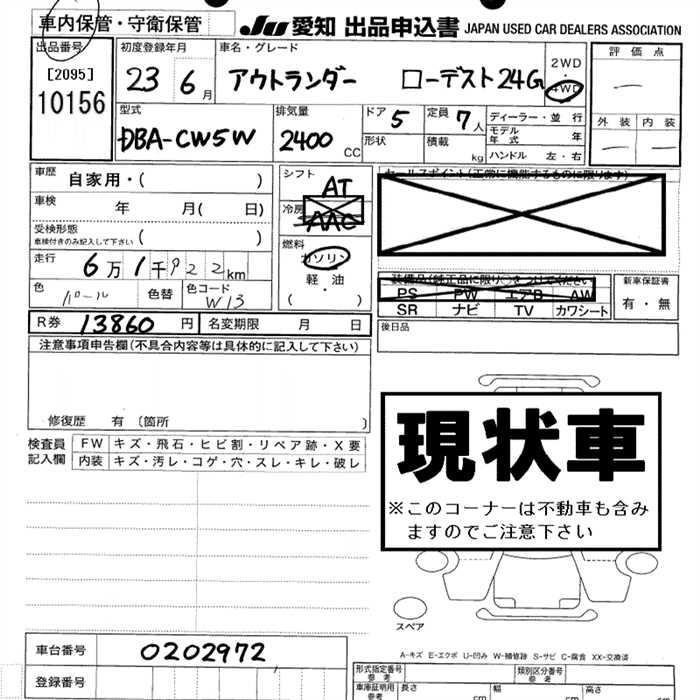 車内保管・守衛保管
JU 愛知 出品申込書 JAPAN USED CAR DEALERS ASSOCIATION
出品番号
[2095]
10156
初度登録年月
23 6月
車名・グレード
アウトランダー ローデスト24G
2WD
・
4WD
評価点
—
外装 内装
— —
型式
DBA-CW5W
排気量
2400 CC
ドア 5
形状
定員 7人
積載 kg
ディーラー・並行
モデル年式 年
ハンドル 左・右
車歴 自家用・( )
車検 年 月( 日)
受検形態
車検付きのみ記入して下さい ( )
走行 6万1千922km
色 パール 色替 色コード W13
シフト AT
冷房 AAC
燃料
ガソリン
軽・油
( ・ )
セールスポイント(正常に機能するものに限ります)
装備品(純正品に限り○をつけてください)
PS PW エアB AW
SR ナビ TV カワシート
新車保証書
有・無
R券 13860円 名変期限 月 日
後日品
注意事項申告欄(不具合内容等は具体的に記入して下さい)
修復歴 有〔箇所 〕
検査員記入欄
FW キズ・飛石・ヒビ割・リペア跡・X要
内装 キズ・汚レ・コゲ・穴・スレ・キレ・破レ
現状車
※このコーナーは不動車も含み
ますのでご注意下さい
スペア
A-キズ E-エクボ U-凹み W-補修跡 S-サビ C-腐食 XX-交換済
車台番号 0202972
登録番号
形式指定番号
参考
類別区分番号
参考
車庫証明用
参考
長さ cm 幅 cm 高さ cm